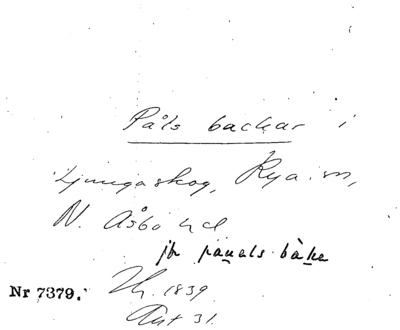 Påls backar i
Ljungaskog, Rya sn,
N. Åsbo hd
jfr pauals bàka
Nr 7379.
Th. 1839
Akt 31.